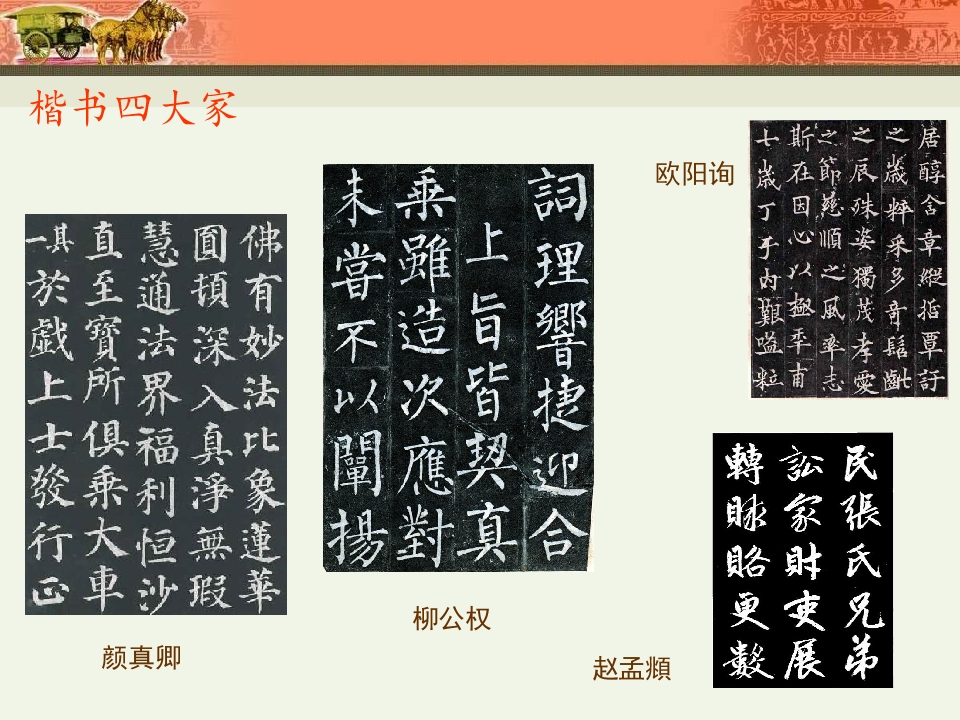 楷书四大家
佛有妙法比象蓮華
圓頓深入真淨無瑕
慧通法界福利恒沙
直至寶所俱乘大車
其一於戲上士發行正
颜真卿
詞理響捷迎合
上旨皆契真
乘雖造次應對
未嘗不以闡揚
柳公权
欧阳询
居醇含章縱括覃訏
之歲粹采多奇髫齔
之辰殊姿獨茂孝愛
之節慈順之風率志
斯在因心以極年甫
七歲丁于內艱嗌粒
民張氏兄弟
訟家財吏展
轉賕賂更數
赵孟頫